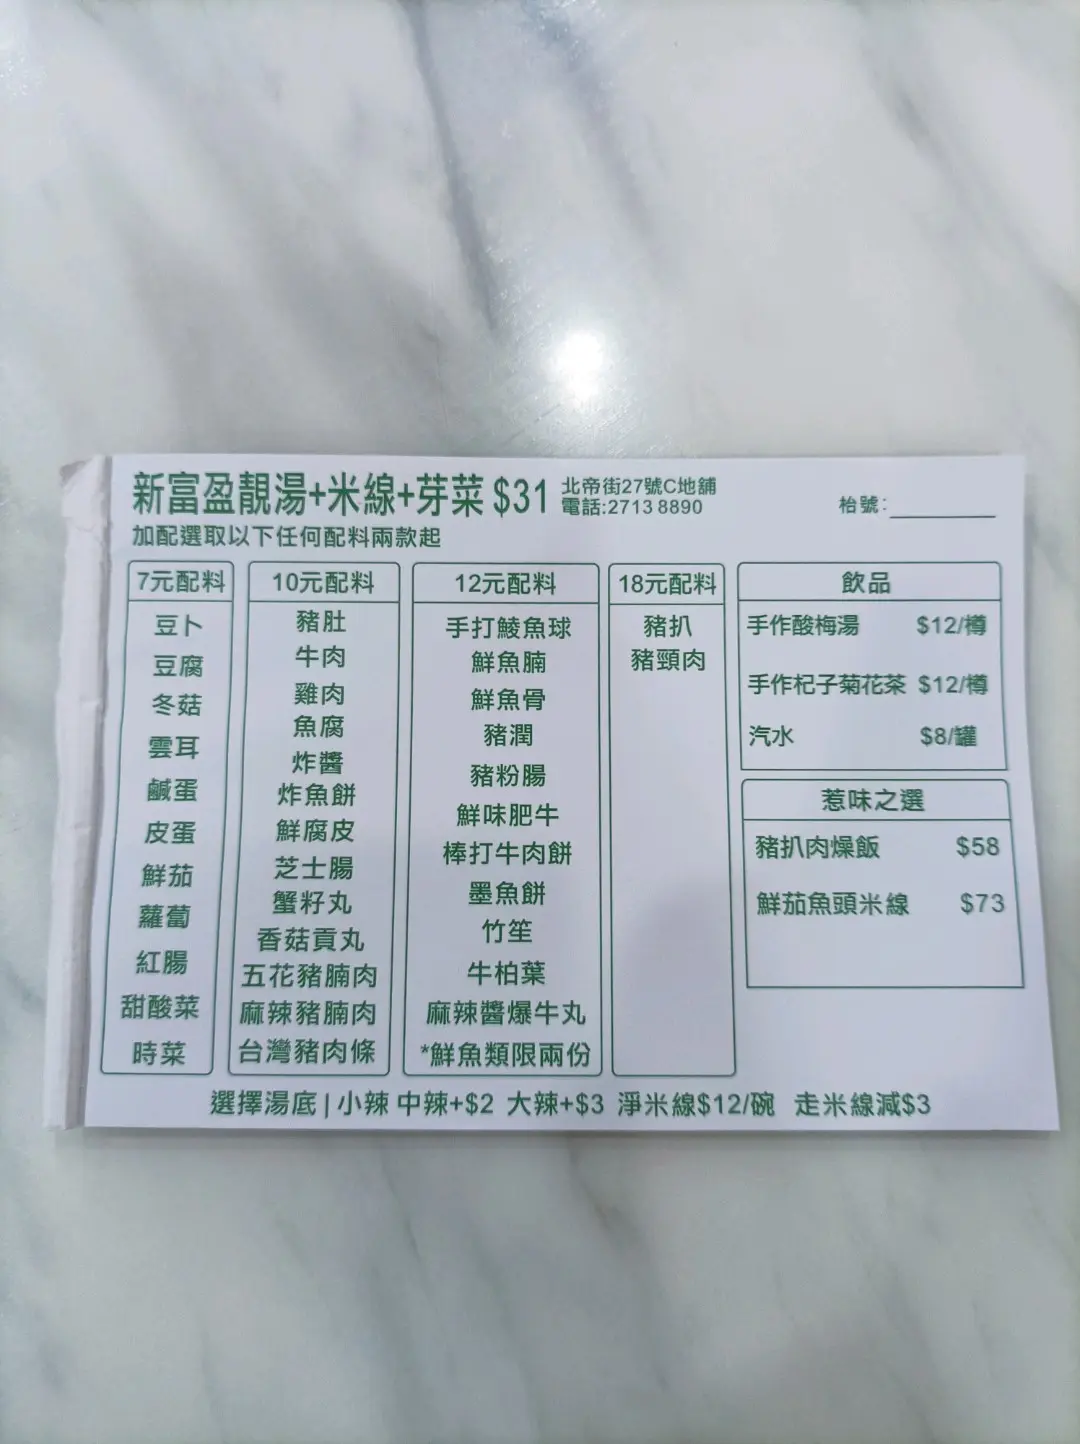 新富盈靚湯+米線+芽菜 $31
北帝街27號C地舖
電話:2713 8890
枱號:
加配選取以下任何配料兩款起
7元配料
豆卜
豆腐
冬菇
雲耳
鹹蛋
皮蛋
鮮茄
蘿蔔
紅腸
甜酸菜
時菜
10元配料
豬肚
牛肉
雞肉
魚腐
炸醬
炸魚餅
鮮腐皮
芝士腸
蟹籽丸
香菇貢丸
五花豬腩肉
麻辣豬腩肉
台灣豬肉條
12元配料
手打鯪魚球
鮮魚腩
鮮魚骨
豬潤
豬粉腸
鮮味肥牛
棒打牛肉餅
墨魚餅
竹笙
牛柏葉
麻辣醬爆牛丸
*鮮魚類限兩份
18元配料
豬扒
豬頸肉
飲品
手作酸梅湯 $12/樽
手作杞子菊花茶 $12/樽
汽水 $8/罐
惹味之選
豬扒肉燥飯 $58
鮮茄魚頭米線 $73
選擇湯底 | 小辣 中辣+$2 大辣+$3 淨米線$12/碗 走米線減$3